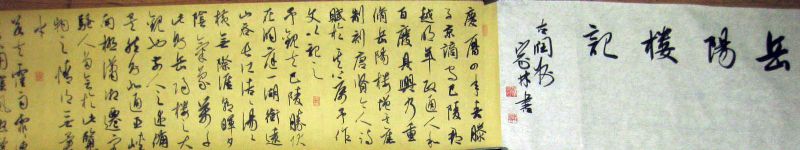 岳陽樓記
古润州
書
慶曆四年春滕
子京謫守巴陵郡
越明年政通人和
百廢具興乃重
脩岳陽樓增其舊
制刻唐賢今人詩
賦於其上屬予作
文以記之
予觀夫巴陵勝狀
在洞庭一湖銜遠
山吞長江浩浩湯湯
橫無際涯朝暉夕
陰氣象萬千
此則岳陽樓之大
觀也前人之述備
矣然則北通巫峽
南極瀟湘遷客
騷人多會於此覽
物之情得無異
乎
若夫霪雨霏